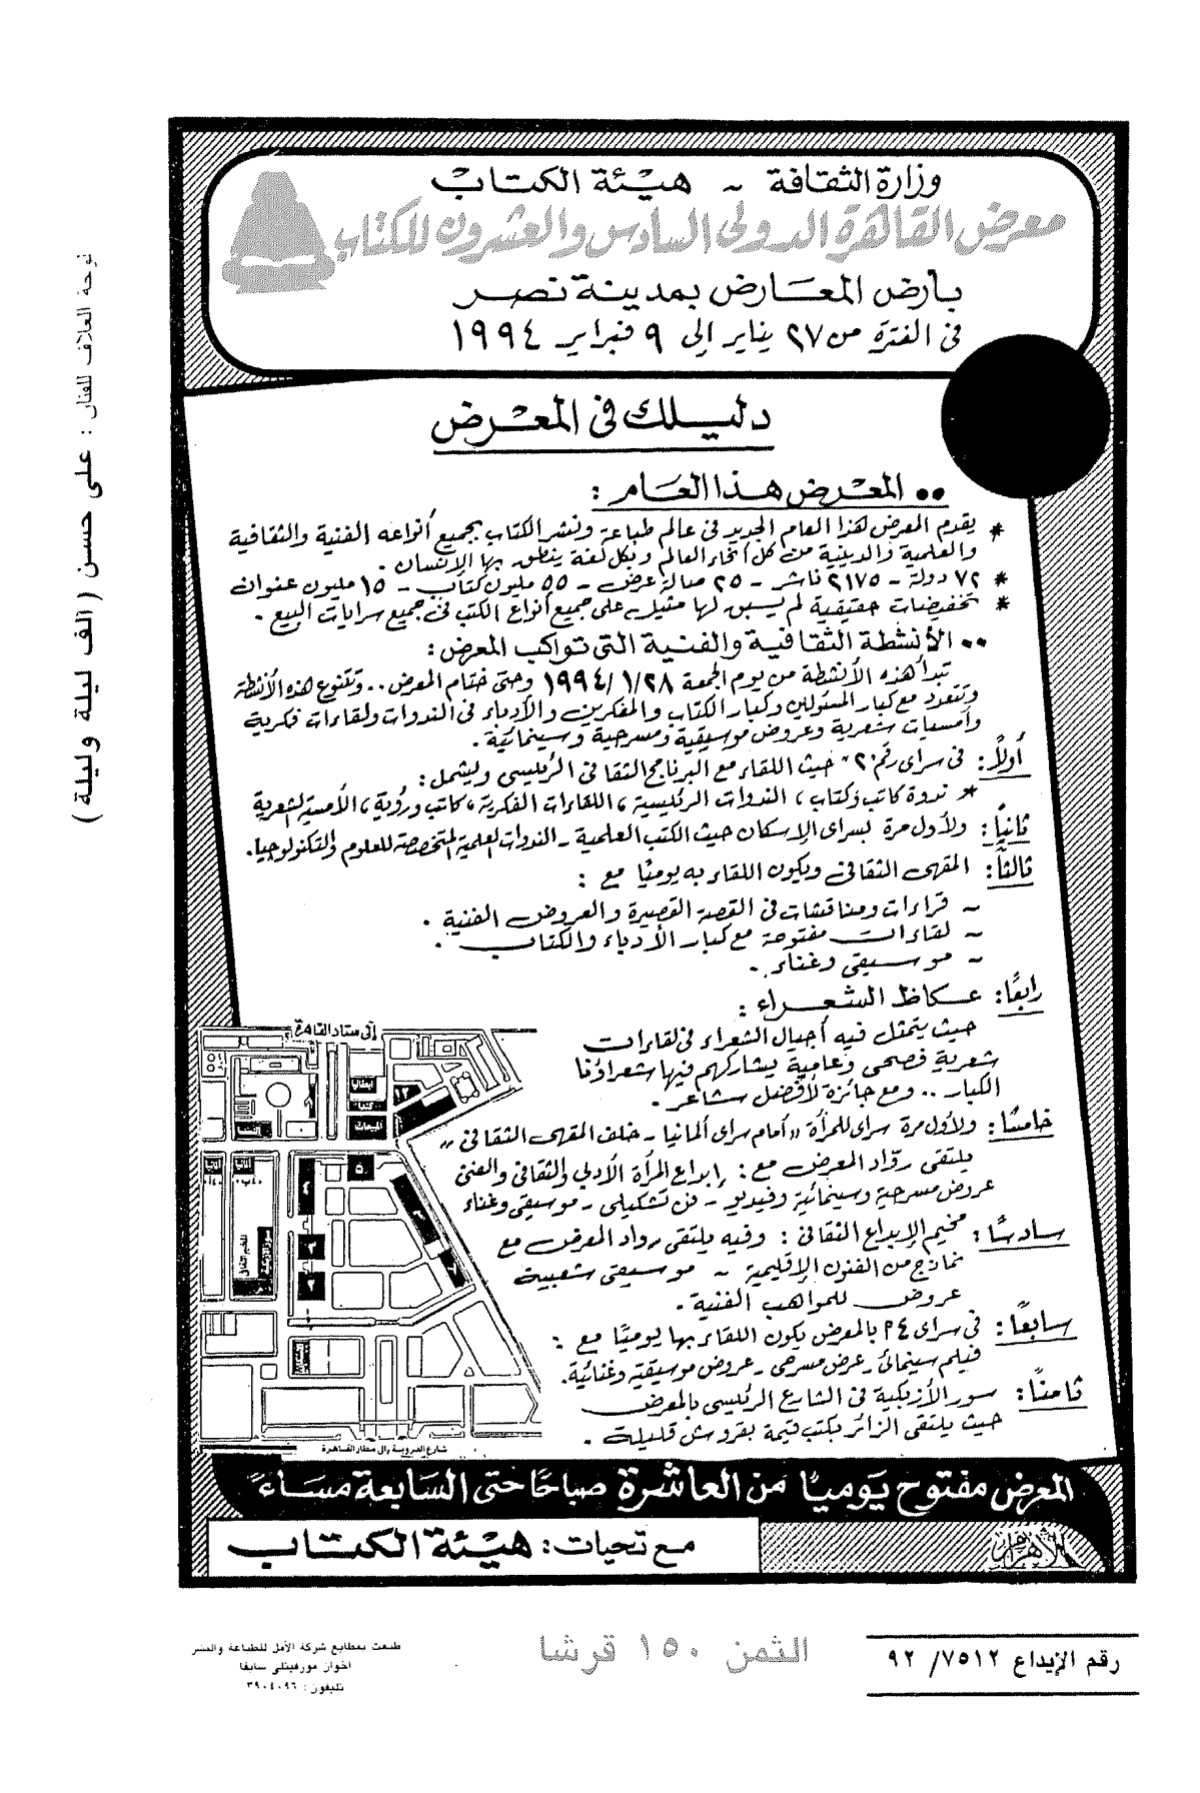 وزارة الثقافة - هيئة الكتاب
معرض القاهرة الدولى السادس والعشرون للكتاب
بأرض المعارض بمدينة نصر
فى الفترة من ٢٧ يناير إلى ٩ فبراير ١٩٩٤
دليلك فى المعرض
•• المعرض هذا العام :
* يقدم المعرض هذا العام الجديد فى عالم طباعة ونشر الكتاب بجميع أنواعه الفنية والثقافية
والعلمية والدينية من كل أنحاء العالم وبكل لغة ينطق بها الإنسان .
* ٧٢ دولة - ٢١٧٥ ناشر - ٢٥ صالة عرض - ٥٥ مليون كتاب - ١٥ مليون عنوان
* تخفيضات حقيقية لم يسبق لها مثيل على جميع أنواع الكتب فى جميع سرايات البيع .
•• الأنشطة الثقافية والفنية التى تواكب المعرض :
تبدأ هذه الأنشطة من يوم الجمعة ١٩٩٤/١/٢٨ وحتى ختام المعرض .. وتتنوع هذه الأنشطة
وتتعدد مع كبار المسئولين وكبار الكتاب والمفكرين والأدباء فى الندوات ولقاءات فكرية
وأمسيات شعرية وعروض موسيقية ومسرحية وسينمائية .
أولاً : فى سراى رقم ٢" حيث اللقاء مع البرنامج الثقافى الرئيسى ويشمل :
* ندوة كاتب وكتاب ، الندوات الرئيسية ، اللقاءات الفكرية ، كاتب ورؤية ، الأمسية الشعرية
ثانياً : ولأول مرة بسراى الإسكان حيث الكتب العلمية - الندوات العلمية المتخصصة للعلوم والتكنولوجيا .
ثالثاً : المقهى الثقافى ويكون اللقاء به يوميًا مع :
- قراءات ومناقشات فى القصة القصيرة والعروض الفنية .
- لقاءات مفتوحة مع كبار الأدباء والكتاب .
- موسيقى وغناء .
رابعًا : عكاظ الشعراء :
حيث يتمثل فيه أجيال الشعراء فى لقاءات
شعرية فصحى وعامية يشاركهم فيها شعراؤنا
الكبار .. ومع جائزة لأفضل شاعر .
خامسًا : ولأول مرة سراى للمرأة "أمام سراى ألمانيا - خلف المقهى الثقافى"
يلتقى رواد المعرض مع : إبداع المرأة الأدبى والثقافى والفنى
عروض مسرحية وسينمائية وفيديو - فن تشكيلى - موسيقى وغناء
سادسًا : مخيم الإبداع الثقافى : وفيه يلتقى رواد المعرض مع
نماذج من الفنون الإقليمية - موسيقى شعبية
عروض للمواهب الفنية .
سابعًا : فى سراى ٢٤ بالمعرض يكون اللقاء بها يوميًا مع :
فيلم سينمائى - عرض مسرحى - عروض موسيقية وغنائية .
ثامنًا : سور الأزبكية فى الشارع الرئيسى بالمعرض
حيث يلتقى الزائر بكتب قيمة بقروش قليلة .
إلى ستاد القاهرة
ايطاليا
١٣
المبيعات
٥
٤
٣
٢
شارع العروبة وإلى مطار القاهرة
المعرض مفتوح يوميًا من العاشرة صباحًا حتى السابعة مساءً
مع تحيات : هيئة الكتاب
الأهرام
لوحة الغلاف للفنان : على حسن ( الف ليلة وليلة )
رقم الإيداع ٧٥١٢ / ٩٢
الثمن ١٥٠ قرشا
طبعت بمطابع شركة الأمل للطباعة والنشر
اخوان مورفيتلى سابقا
تليفون : ٣٩٠٤٠٩٦